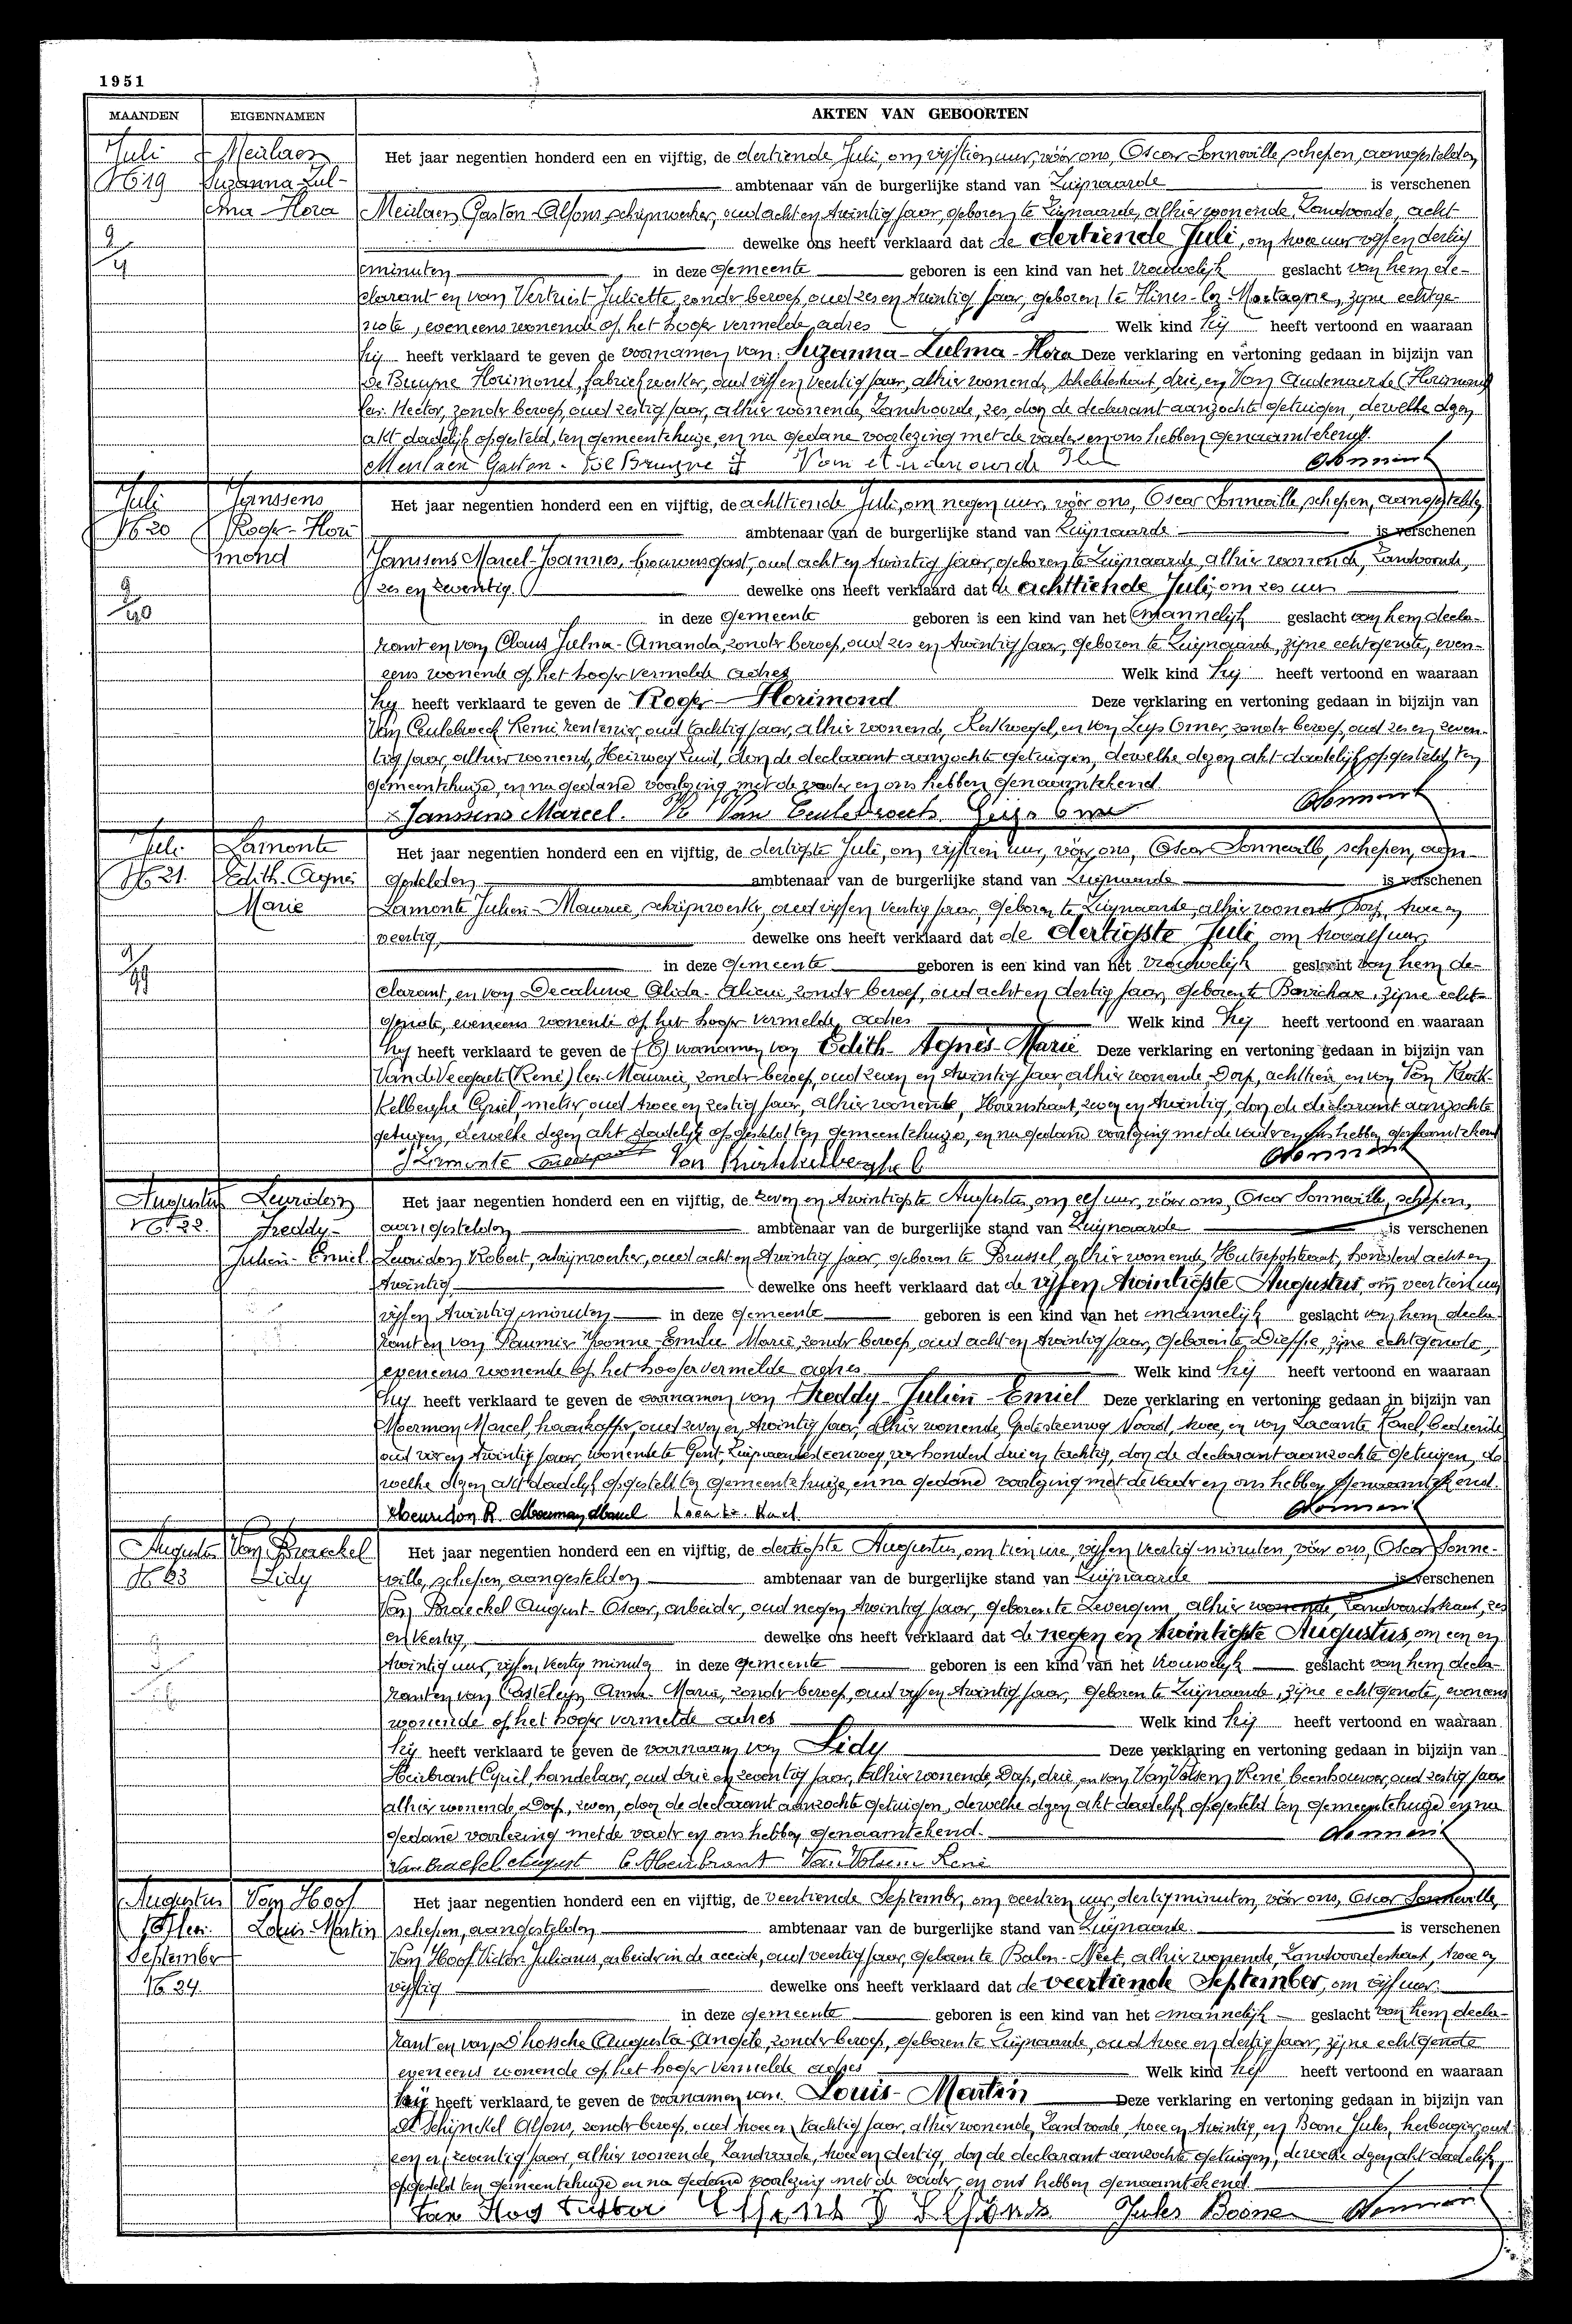 1951
MAANDEN EIGENNAMEN AKTEN VAN GEBOORTEN
Juli Meulaen Het jaar negentien honderd een en vijftig, de dertiende Juli, om vijftien uur, vóór ons, Oscar Sonneville, schepen, aangestelden
N 19 Suzanna-Zul- ambtenaar van de burgerlijke stand van Zwijnaarde is verschenen
ma-Flora Meulaen Gaston-Alfons, schrijnwerker, oud acht en twintig jaar, geboren te Zwijnaarde, alhier wonende, Zandvoorde, acht
dewelke ons heeft verklaard dat de dertiende Juli, om twee uur vijf en dertig
minuten in deze gemeente geboren is een kind van het vrouwelijk geslacht van hem de-
clarant en van Vertriest Juliette, zonder beroep, oud zes en twintig jaar, geboren te Flines-lez-Mortagne, zijne echtge-
note, eveneens wonende op het hooger vermelde adres Welk kind hij heeft vertoond en waaraan
hij heeft verklaard te geven de voornamen van: Suzanna-Zulma-Flora Deze verklaring en vertoning gedaan in bijzijn van
De Bruyne Florimond, fabriekwerker, oud vijf en veertig jaar, alhier wonende, Scheldestraat, drie, en Van Oudenaerde (Florimond)
lez. Hector, zonder beroep, oud zestig jaar, alhier wonende, Zandvoorde, zes, door de declarant aanzochte getuigen, dewelke dezen
akt dadelijk opgesteld, ten gemeentehuize, en na gedane voorlezing met de vader en ons hebben genaamtekend.
Meulaen Gaston. De Bruyne F
Juli Janssens Het jaar negentien honderd een en vijftig, de achttiende Juli, om negen uur, vóór ons, Oscar Sonneville, schepen, aangestelden
N 20 Roger-Flori ambtenaar van de burgerlijke stand van Zwijnaarde is verschenen
mond Janssens Marcel-Joannes, brouwersgast, oud acht en twintig jaar, geboren te Zwijnaarde, alhier wonende, Zandvoorde,
zes en zeventig dewelke ons heeft verklaard dat de achttiende Juli, om zes uur
in deze gemeente geboren is een kind van het mannelijk geslacht van hem decla-
rant en van Claus Julma-Amanda, zonder beroep, oud zes en twintig jaar, geboren te Zwijnaarde, zijne echtgenote, even-
eens wonende op het hooger vermelde adres Welk kind hij heeft vertoond en waaraan
hij heeft verklaard te geven de Roger-Florimond Deze verklaring en vertoning gedaan in bijzijn van
Van Ceulebroeck Remi, rentenier, oud tachtig jaar, alhier wonende, Kerkwegel, en van Leys Omer, zonder beroep, oud zes en zeven-
tig jaar, alhier wonende, Heirweg Zuid, door de declarant aanzochte getuigen, dewelke dezen akt dadelijk opgesteld, ten
gemeentehuize, en na gedane voorlezing met de vader en ons hebben genaamtekend.
Janssens Marcel. R Van Ceulebroeck Leijs Omer
Juli Lamonte Het jaar negentien honderd een en vijftig, de dertigste Juli, om vijftien uur, vóór ons, Oscar Sonneville, schepen, aan-
N 21. Edith-Agnès gestelden ambtenaar van de burgerlijke stand van Zwijnaarde is verschenen
Marie Lamonte Julien-Maurice, schrijnwerker, oud vijf en veertig jaar, geboren te Zwijnaarde, alhier wonende Dorp, twee en
veertig, dewelke ons heeft verklaard dat de dertigste Juli om twaalf uur,
in deze gemeente geboren is een kind van het vrouwelijk geslacht van hem de-
clarant, en van Decaluwe Alida-Alicia, zonder beroep, oud acht en dertig jaar, geboren te Bavichove, zijne echt-
genote, eveneens wonende op het hooger vermelde adres Welk kind hij heeft vertoond en waaraan
hij heeft verklaard te geven de voornamen van Edith-Agnès-Marie Deze verklaring en vertoning gedaan in bijzijn van
Van de Veegaete (René) lez. Maurice, zonder beroep, oud zeven en twintig jaar, alhier wonende, Dorp, achttien, en van Van Kerk-
kelberghe Cyriel, metser, oud twee en zestig jaar, alhier wonende, Hoornstraat, zeven en twintig, door de declarant aanzochte
getuigen, dewelke dezen akt dadelijk opgesteld ten gemeentehuize, en na gedane voorlezing met de vader en ons hebben genaamtekend
J Lamonte
Augustus Leuridon Het jaar negentien honderd een en vijftig, de zeven en twintigste Augustus, om elf uur, vóór ons, Oscar Sonneville, schepen,
N 22. Freddy- aangestelden ambtenaar van de burgerlijke stand van Zwijnaarde is verschenen
Julien-Emiel Leuridon Robert, schrijnwerker, oud acht en twintig jaar, geboren te Brussel, alhier wonende, Hutsepotstraat, honderd acht en
twintig dewelke ons heeft verklaard dat de vijf en twintigste Augustus, om veertien uur
vijf en twintig minuten in deze gemeente geboren is een kind van het mannelijk geslacht van hem decla-
rant en van Paumier Yvonne-Emilie-Marie, zonder beroep, oud acht en twintig jaar, geboren te Dieppe, zijne echtgenote,
eveneens wonende op het hooger vermelde adres. Welk kind hij heeft vertoond en waaraan
hij heeft verklaard te geven de voornamen van Freddy-Julien-Emiel Deze verklaring en vertoning gedaan in bijzijn van
Moerman Marcel, haarkapper, oud zeven en twintig jaar, alhier wonende, Grotesteenweg Noord, twee, en van Lacante Karel, bediende
oud vier en twintig jaar, wonende te Gent, Zwijnaardesteenweg, vier honderd drie en tachtig, door de declarant aanzochte getuigen, de
welke dezen akt dadelijk opgesteld ten gemeentehuize, en na gedane voorlezing met de vader en ons hebben genaamtekend.
Leuridon R. Moerman Marcel Lacante Karel
Augustus Van Braeckel Het jaar negentien honderd een en vijftig, de dertigste Augustus, om tien ure, vijf en veertig minuten, vóór ons, Oscar Sonne-
N 23 Lidy ville, schepen, aangestelden ambtenaar van de burgerlijke stand van Zwijnaarde is verschenen
Van Braeckel August-Oscar, arbeider, oud negen twintig jaar, geboren te Zevergem, alhier wonende, Zandvoordestraat, zes
en veertig, dewelke ons heeft verklaard dat de negen en twintigste Augustus, om een en
twintig uur, vijf en veertig minuten in deze gemeente geboren is een kind van het vrouwelijk geslacht van hem decla-
rant en van Casteleyn Anna-Maria, zonder beroep, oud vijf en twintig jaar, geboren te Zwijnaarde, zijne echtgenote, eveneens
wonende op het hooger vermelde adres Welk kind hij heeft vertoond en waaraan
hij heeft verklaard te geven de voornaam van Lidy Deze verklaring en vertoning gedaan in bijzijn van
Heirbrant Cyriel, handelaar, oud drie en zeventig jaar, alhier wonende, Dorp, drie, en van Van Volsem René, beenhouwer, oud zestig jaar
alhier wonende, Dorp, zeven, door de declarant aanzochte getuigen, dewelke dezen akt dadelijk opgesteld ten gemeentehuize en na
gedane voorlezing met de vader en ons hebben genaamtekend.
Van Braekel August C Heirbrant Van Volsem René
Augustus Van Hoof Het jaar negentien honderd een en vijftig, de veertiende September, om veertien uur, dertig minuten, vóór ons, Oscar Sonneville,
Louis-Martin schepen, aangestelden ambtenaar van de burgerlijke stand van Zwijnaarde. is verschenen
September Van Hoof Victor-Julianus, arbeider in de accide, oud veertig jaar, geboren te Balen-Neet, alhier wonende, Zandvoordestraat, twee en
N 24. vijftig dewelke ons heeft verklaard dat de veertiende September, om vijf uur.
in deze gemeente geboren is een kind van het mannelijk geslacht van hem decla-
rant en van D'hossche Augusta-Angèle, zonder beroep, geboren te Zwijnaarde, oud twee en dertig jaar, zijne echtgenote
eveneens wonende op het hooger vermelde adres Welk kind hij heeft vertoond en waaraan
hij heeft verklaard te geven de voornamen van Louis-Martin Deze verklaring en vertoning gedaan in bijzijn van
De Schynckel Alfons, zonder beroep, oud twee en tachtig jaar, alhier wonende, Zandvoorde, twee en twintig, en Boone Jules, herbergier, oud
een en zeventig jaar, alhier wonende, Zandvoorde, twee en dertig, door de declarant aanzochte getuigen, dewelke dezen akt dadelijk
opgesteld ten gemeentehuize en na gedane voorlezing met de vader en ons hebben genaamtekend.
Van Hoof Victor Jules Boone